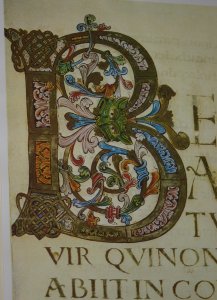 B E
A
TV
VIR QVI NON
ABIIT IN CO